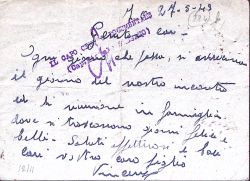 27-3-43
Genitori cari
Ogni giorno che passa, si avvicina
il giorno del nostro incontro
ed di riunione in famiglia
dove si trascorrono giorni felici e
belli. Saluti affettuosi e baci
cari vostro caro figlio
Vincenzo